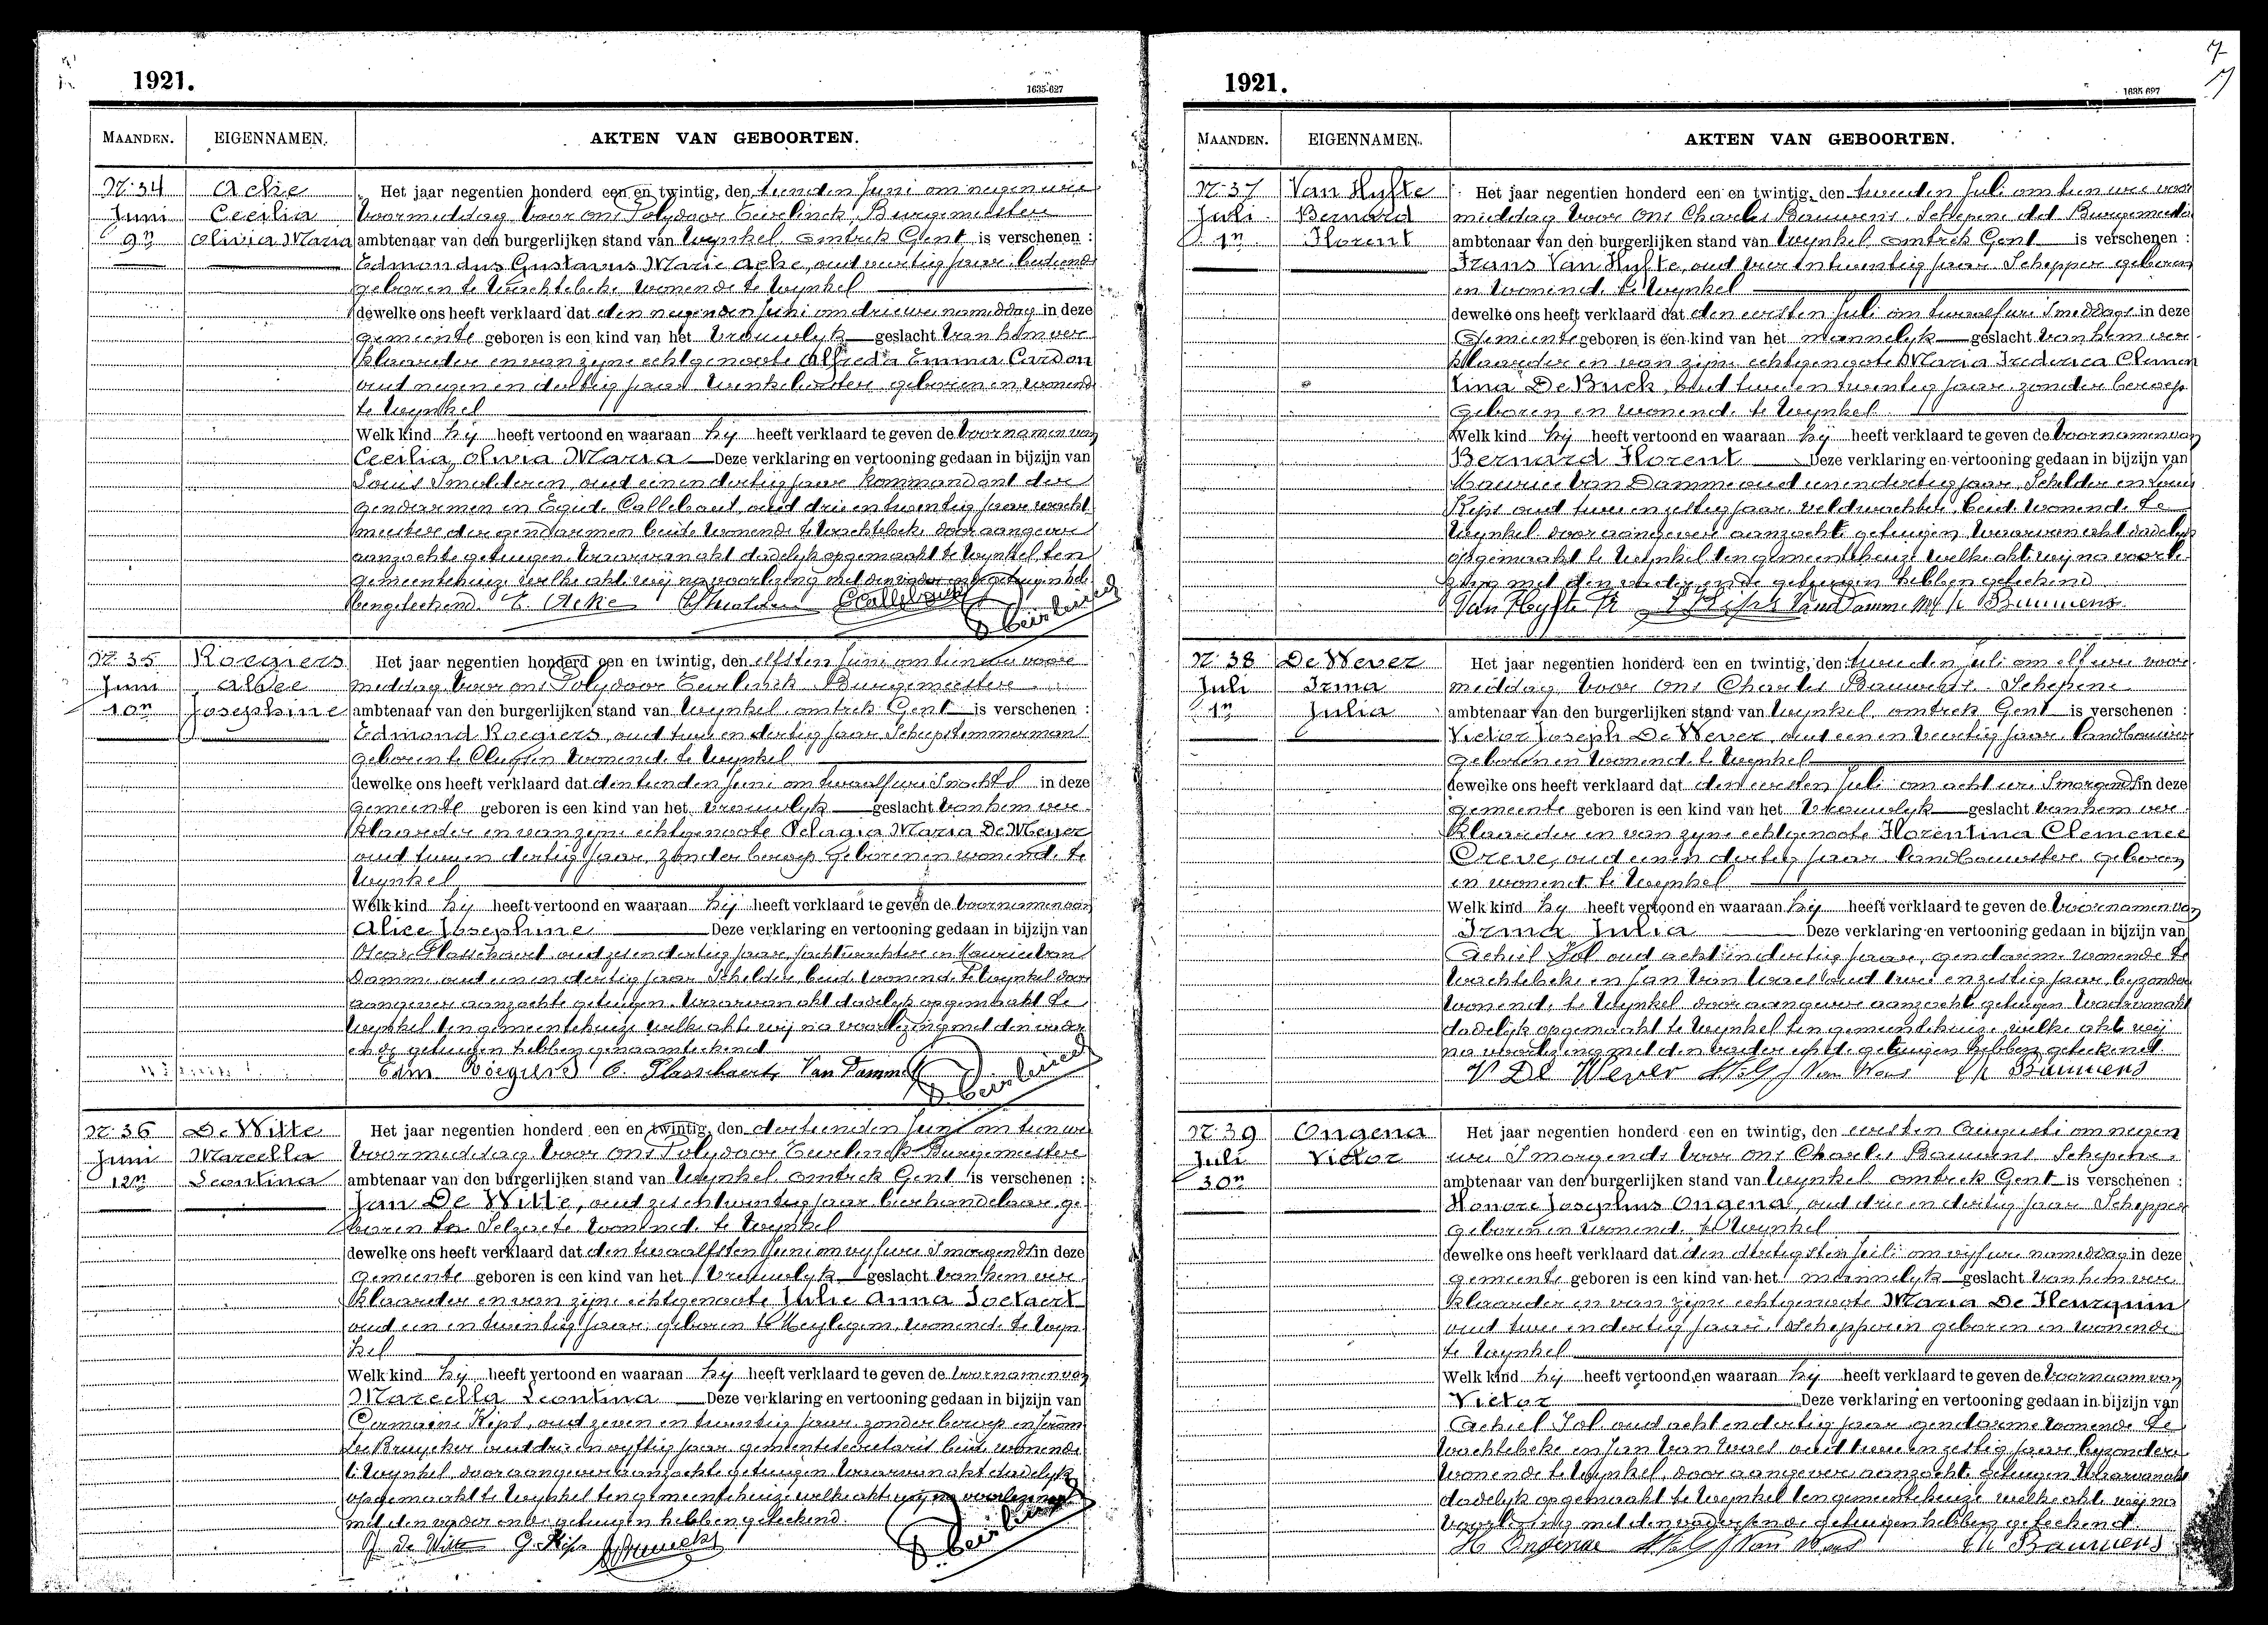 1921.
1635-627
MAANDEN.
EIGENNAMEN.
AKTEN VAN GEBOORTEN.
Nr 34
Juni
9n
Acke
Cecilia
Olivia Maria
Het jaar negentien honderd een en twintig, den tienden Juni om negen ure
voormiddag voor ons Polydoor Eeirlinck Burgemeester
ambtenaar van den burgerlijken stand van Wynkel omtrek Gent is verschenen :
Edmondus Gustavus Marie Acke, oud veertig jaar, bediende
geboren te Wachtebeke wonende te Wynkel
dewelke ons heeft verklaard dat den negenden Juni om drie ure namiddag in deze
gemeente geboren is een kind van het vrouwelyk geslacht van hem ver
klaarder en van zyne echtgenoote Alfreda Emma Cardon
oud negen en dertig jaar winkelierster geboren en wonende
te Wynkel
Welk kind hy heeft vertoond en waaraan hy heeft verklaard te geven de voornamen van
Cecilia Olivia Maria Deze verklaring en vertooning gedaan in bijzijn van
Louis Smolderen, oud een en dertig jaar kommandant der
gendarmen en Egide Callebaut, oud drie en twintig jaar wacht
meester der gendarmen beide wonende te Wachtebeke door aangever
aanzochte getuigen. Waarvan akt dadelyk opgemaakt te Wynkel ten
gemeentehuize welke akt wij na voorlezing met den vader en de getuigen heb
ben geteekend. E. Acke Smolderen Callebaut
Nr 35
Juni
10n
Roegiers
Alice
Josephine
Het jaar negentien honderd een en twintig, den elfsten Juni om tien ure voor
middag voor ons Polydoor Eeirlinck Burgemeester
ambtenaar van den burgerlijken stand van Wynkel omtrek Gent is verschenen :
Edmond Roegiers, oud twee en dertig jaar Scheepstimmerman
geboren te Cluysen wonende te Wynkel
dewelke ons heeft verklaard dat den tienden Juni om twaalf ure s'nachts in deze
gemeente geboren is een kind van het vrouwelyk geslacht van hem ver
klaarder en van zijne echtgenoote Pelagia Maria De Meyer
oud twee en dertig jaar, zonder beroep geboren en wonende te
Wynkel
Welk kind hy heeft vertoond en waaraan hij heeft verklaard te geven de voornamen van
Alice Josephine Deze verklaring en vertooning gedaan in bijzijn van
Oscar Plasschaert oud zes en dertig jaar, jachtwachter en Maurice Van
Damme oud een en dertig jaar Schilder beide wonende te Wynkel door
aangever aanzochte getuigen. Waarvan akt dadelyk opgemaakt te
Wynkel ten gemeentehuize welke akte wij na voorlezing met den vader
en de getuigen hebben genaamteekend
Edm Roegiers O. Plasschaert Van Damme
Nr 36
Juni
12n
De Witte
Marcella
Leontina
Het jaar negentien honderd een en twintig, den dertienden Juni om tien ure
voormiddag voor ons Polydoor Eeirlinck Burgemeester
ambtenaar van den burgerlijken stand van Wynkel omtrek Gent is verschenen :
Jan De Witte, oud zes en twintig jaar bierhandelaar ge
boren te Selzaete wonende te Wynkel
dewelke ons heeft verklaard dat den twaalfsten Juni om vyf ure s'morgends in deze
gemeente geboren is een kind van het vrouwelyk geslacht van hem ver
klaarder en van zijne echtgenoote Julie Anna
oud een en twintig jaar, geboren te Meylegem, wonende te Wyn
kel
Welk kind hy heeft vertoond en waaraan hy heeft verklaard te geven de voornamen van
Marcella Leontina Deze verklaring en vertooning gedaan in bijzijn van
Germaine Kips, oud zeven en twintig jaar zonder beroep en
De Bruycker oud drie en vyftig jaar gemeentesecretaris beide wonende
te Wynkel door aangever aanzochte getuigen Waarvan akt dadelyk
opgemaakt te Wynkel ten gemeentehuize welke akt wij na voorlezing
met den vader en de getuigen hebben geteekend.
J. De Witte G. Kips
7
1921.
1635-627
MAANDEN.
EIGENNAMEN.
AKTEN VAN GEBOORTEN.
Nr 37
Juli
1n
Van Hyfte
Bernard
Florent
Het jaar negentien honderd een en twintig, den tweeden Juli om tien ure voor
middag voor ons Charles Bauwens Schepene dd Burgemeester
ambtenaar van den burgerlijken stand van Wynkel omtrek Gent is verschenen :
Frans Van Hyfte, oud vier en twintig jaar Schepper geboren
en wonende te Wynkel
dewelke ons heeft verklaard dat den eersten Juli om twaalf ure s'middags in deze
Gemeente geboren is een kind van het mannelyk geslacht van hem ver
klaarder en van zijne echtgenoote Maria Frederica Clemen
tina De Buck, oud twee en twintig jaar zonder beroep
geboren en wonende te Wynkel
Welk kind hy heeft vertoond en waaraan hy heeft verklaard te geven de voornamen van
Bernard Florent Deze verklaring en vertooning gedaan in bijzijn van
Maurice Van Damme oud een en dertig jaar, Schilder en Louis
Kips oud twee en zestig jaar veldwachter beide wonende te
Wynkel door aangever aanzocht getuigen Waarvan akt dadelyk
opgemaakt te Wynkel ten gemeentehuize welke akt wij na voorle
zing met den vader en de getuigen hebben geteekend
Van Hyfte Fr L Kips Van Damme M Ch Bauwens
Nr 38
Juli
1n
De Wever
Irma
Julia
Het jaar negentien honderd een en twintig, den tweeden Juli om elf ure voor
middag voor ons Charles Bauwens Schepene
ambtenaar van den burgerlijken stand van Wynkel omtrek Gent is verschenen :
Victor Joseph De Wever, oud een en veertig jaar landbouwer
geboren en wonende te Wynkel
dewelke ons heeft verklaard dat den eersten Juli om acht ure s'morgends in deze
gemeente geboren is een kind van het vrouwelyk geslacht van hem ver
klaarder en van zyne echtgenoote Florentina Clemence
Creve, oud een en dertig jaar landbouwster geboren
en wonende te Wynkel
Welk kind hy heeft vertoond en waaraan hy heeft verklaard te geven de voornamen van
Irma Julia Deze verklaring en vertooning gedaan in bijzijn van
Achiel Sol oud acht en dertig jaar, gendarme wonende te
Wachtebeke en Jan Van Waes oud twee en zestig jaar, byzondere
wonende te Wynkel door aangever aanzocht getuigen Waarvan akt
dadelyk opgemaakt te Wynkel ten gemeentehuize, welke akt wij
na voorlezing met den vader en de getuigen hebben geteekend.
V De Wever Sol J Van Waes Ch Bauwens
Nr 39
Juli
30n
Ongena
Victor
Het jaar negentien honderd een en twintig, den eersten Augusti om negen
ure s'morgends voor ons Charles Bauwens Schepene
ambtenaar van den burgerlijken stand van Wynkel omtrek Gent is verschenen :
Honore Josephus Ongena, oud drie en dertig jaar Schepper
geboren en wonende te Wynkel
dewelke ons heeft verklaard dat den dertigsten Juli om vijf ure namiddag in deze
gemeente geboren is een kind van het mannelyk geslacht van hem ver
klaarder en van zijne echtgenoote Maria De Fleurquin
oud twee en dertig jaar, Schepperin geboren en wonende
te Wynkel
Welk kind hy heeft vertoond en waaraan hy heeft verklaard te geven de voornaam van
Victor Deze verklaring en vertooning gedaan in bijzijn van
Achiel Sol oud acht en dertig jaar gendarme wonende te
Wachtebeke en Jan Van Waes oud twee en zestig jaar byzondere
wonende te Wynkel, door aangever aanzocht getuigen Waarvan akt
dadelyk opgemaakt te Wynkel ten gemeentehuize welke akt wij na
voorlezing met den vader en de getuigen hebben geteekend
H Ongenae Sol J Van Waes Ch Bauwens